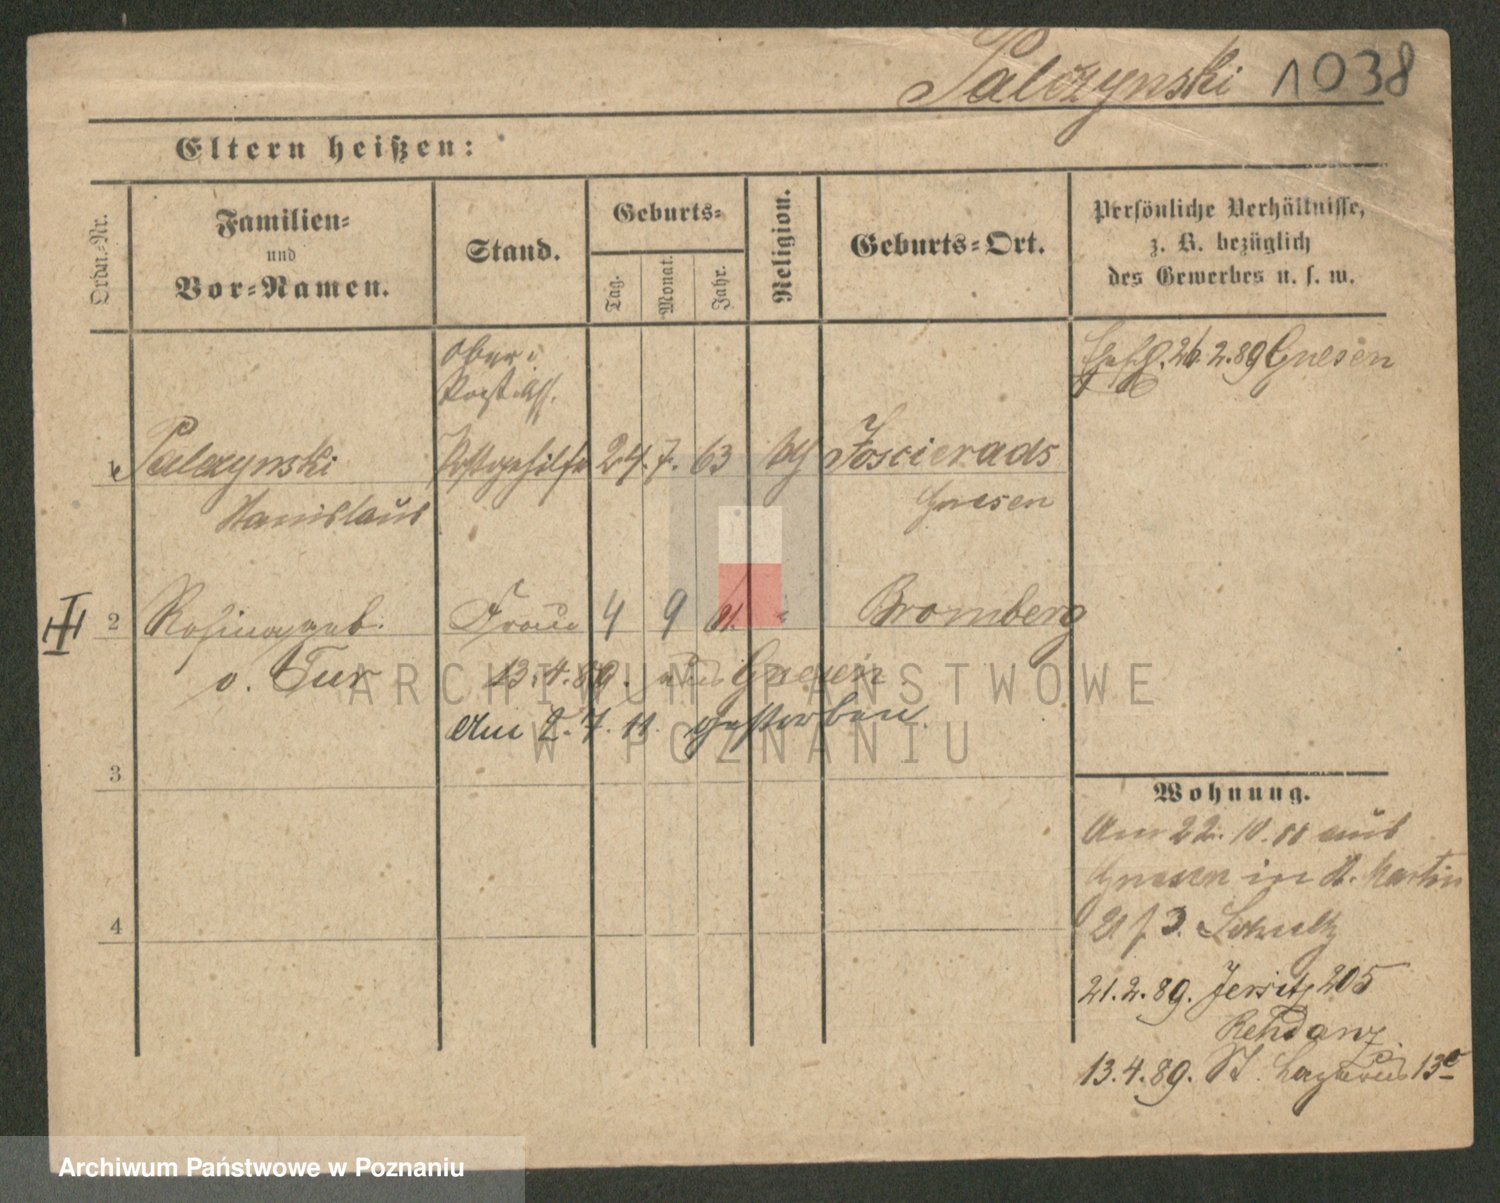 Palczynski 1038
Eltern heißen:
Ordn.-Nr.
Familien-
und
Vor-Namen.
Stand.
Geburts-
Tag.
Monat.
Jahr.
Religion.
Geburts-Ort.
Persönliche Verhältnisse,
z. B. bezüglich
des Gewerbes u. s. w.
Ober-
Post Ass.
26.2.89 Gnesen
1 Palczynski
Stanislaus
Postgehilfe 24. 7. 63
Gnesen
III 2
geb.
v. Tur
Frau 4 9
Bromberg
13.4.89. aus Gnesen
Am 2.7.11 gestorben.
3
4
Wohnung.
Am 22.10.88 aus
Gnesen in St. Martin
21.2.89. Jersitz 205
Rehdanz
13.4.89. St. Lazarus 13
ARCHIWUM PAŃSTWOWE
W POZNANIU
Archiwum Państwowe w Poznaniu